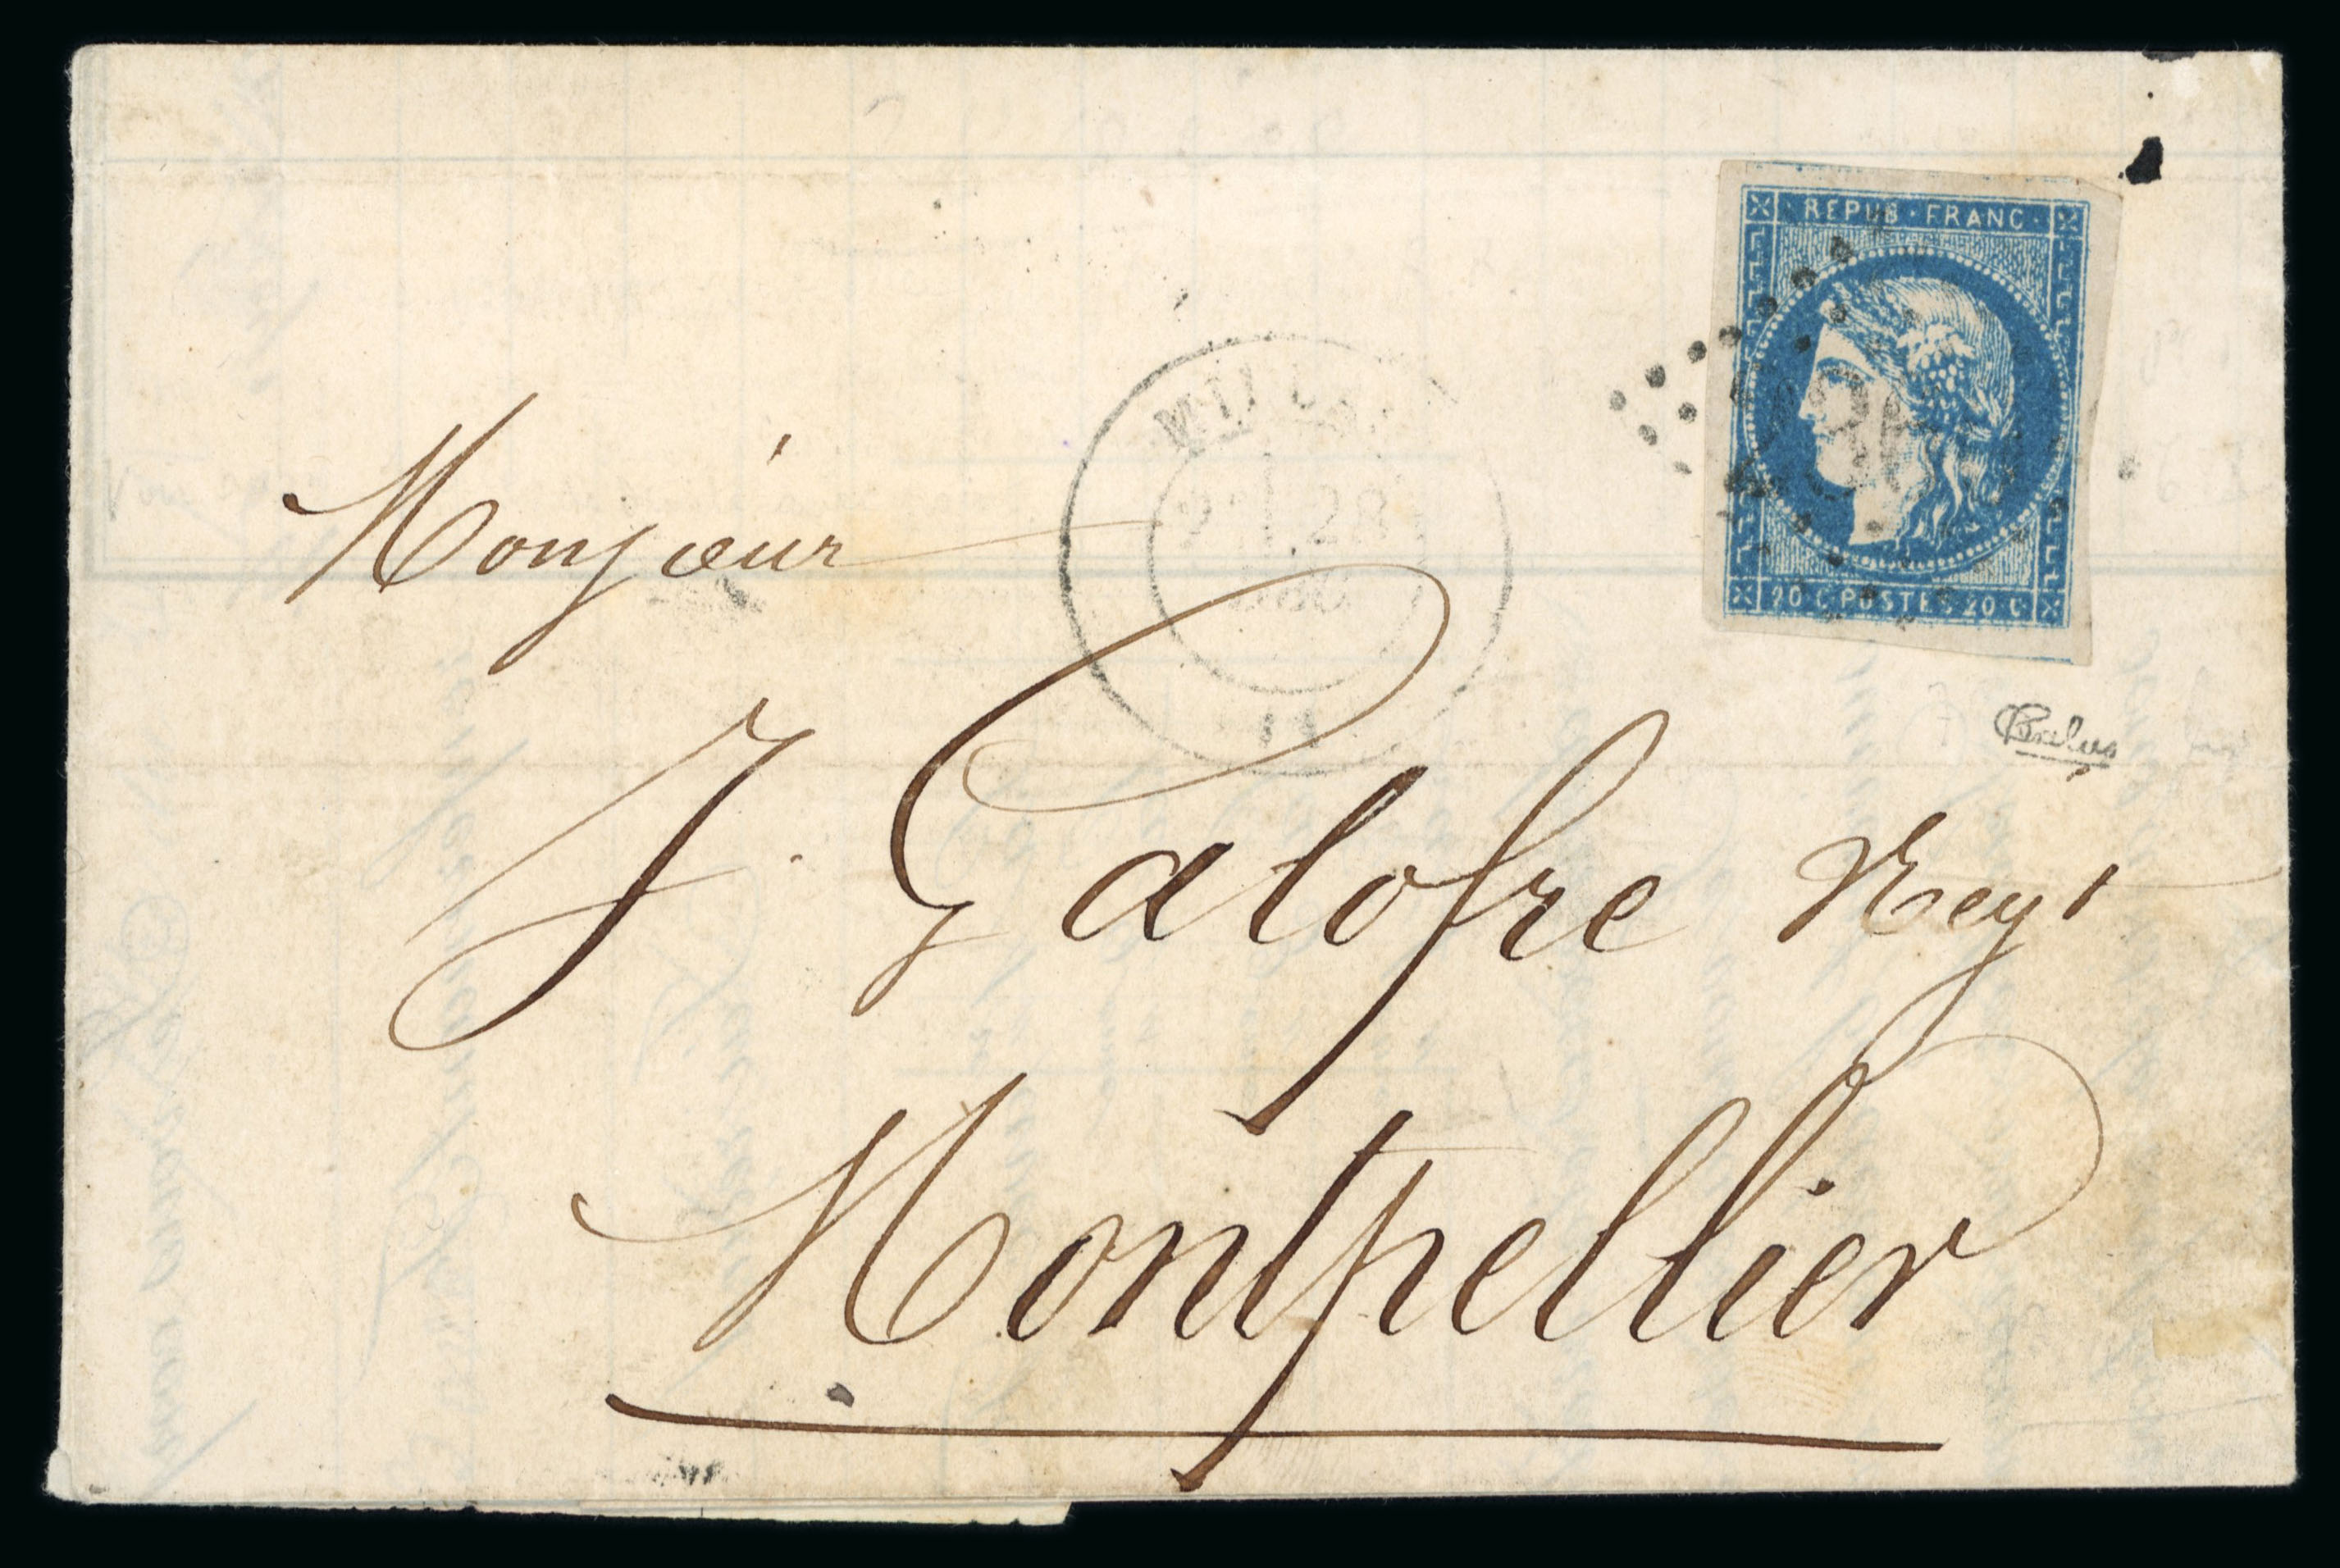 REPUB · FRANC ·
20 C POSTES 20 C
28
11
Monsieur
J. Galofre Neg.t
Montpellier
Calves